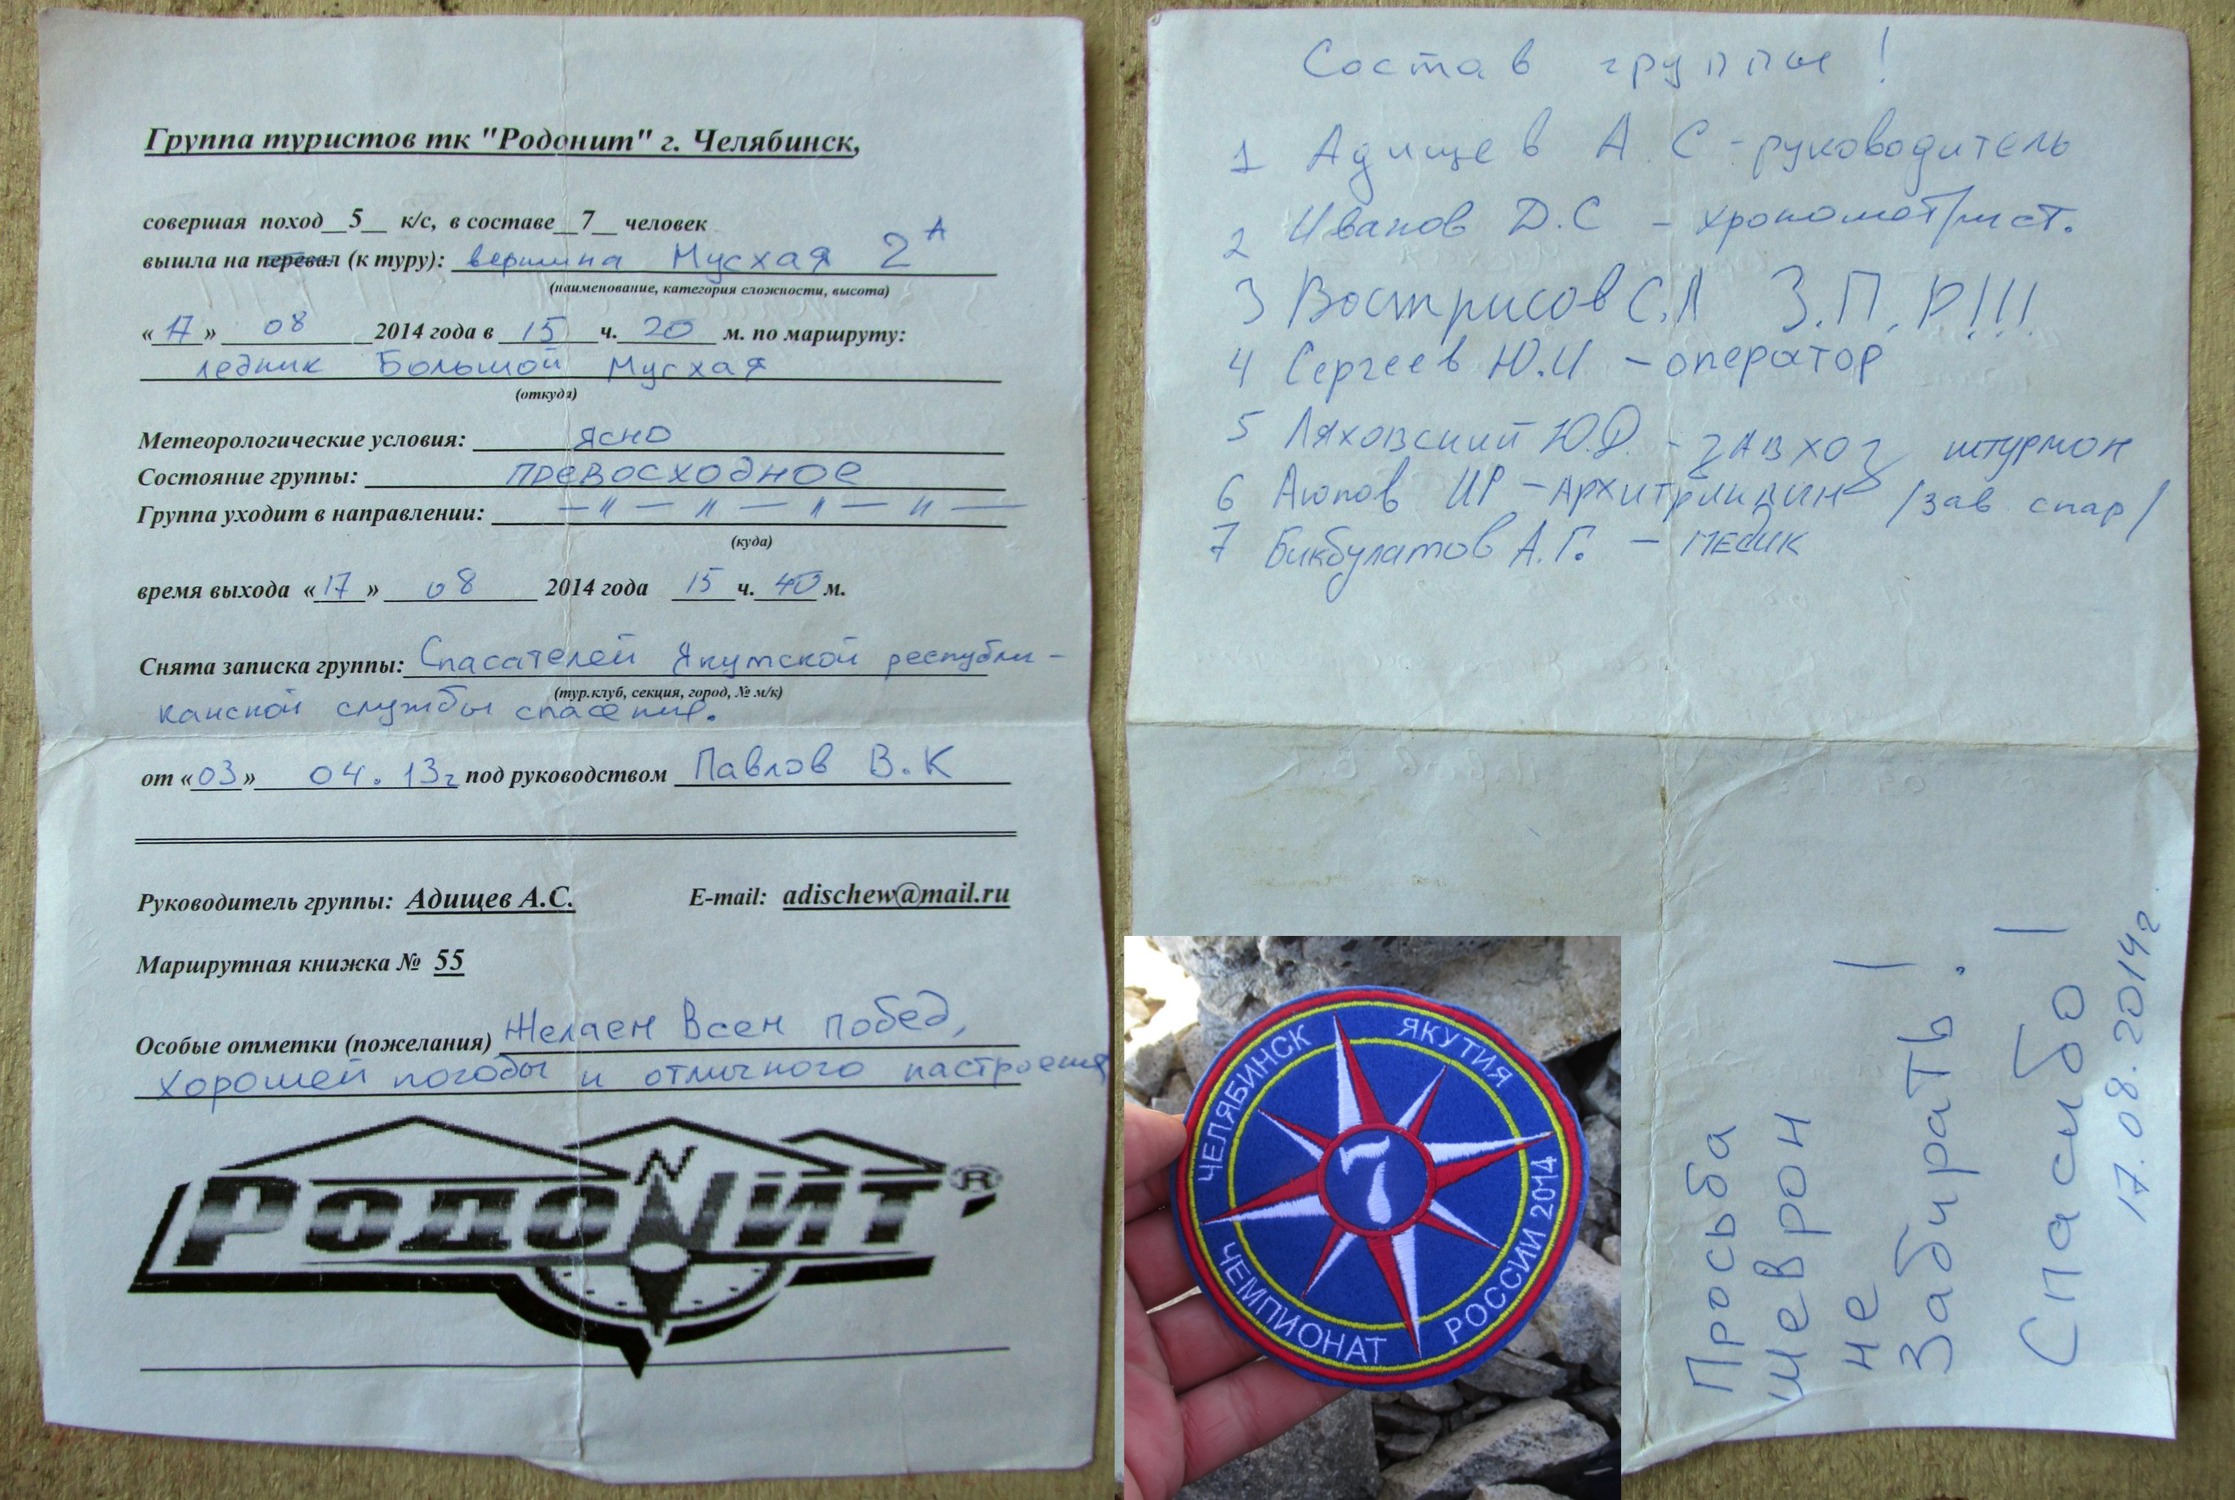 Группа туристов тк "Родонит" г. Челябинск,
совершая поход 5 к/с, в составе 7 человек
вышла на перевал (к туру): вершина Мусхая 2А
(наименование, категория сложности, высота)
«17» 08 2014 года в 15 ч. 20 м. по маршруту:
ледник Большой Мусхая
(откуда)
Метеорологические условия: ясно
Состояние группы: превосходное
Группа уходит в направлении: — " — " — " — " —
(куда)
время выхода «17» 08 2014 года 15 ч. 40 м.
Снята записка группы: Спасателей Якутской республи-
(тур.клуб, секция, город, № м/к)
канской службы спасения.
от «03» 04.13г под руководством Павлов В.К
Руководитель группы: Адищев А.С. E-mail: adischew@mail.ru
Маршрутная книжка № 55
Особые отметки (пожелания) Желаем Всем побед,
хорошей погоды и отличного настроения
РОДОНИТ ®
Состав группы!
1 Адищев А.С - руководитель
2 Иванов Д.С - хронометрист.
3 Вострисов С.Л З.П.Р!!!
4 Сергеев Ю.И - оператор
5 Ляховский Ю.Д. - завхоз штурман
6 Аюпов ИР - /зав снар/
7 Бикбулатов А.Г. - медик
Просьба
шеврон
не
Забирать!
Спасибо!
17.08.2014г.
ЧЕЛЯБИНСК ЯКУТИЯ
7
ЧЕМПИОНАТ РОССИИ 2014